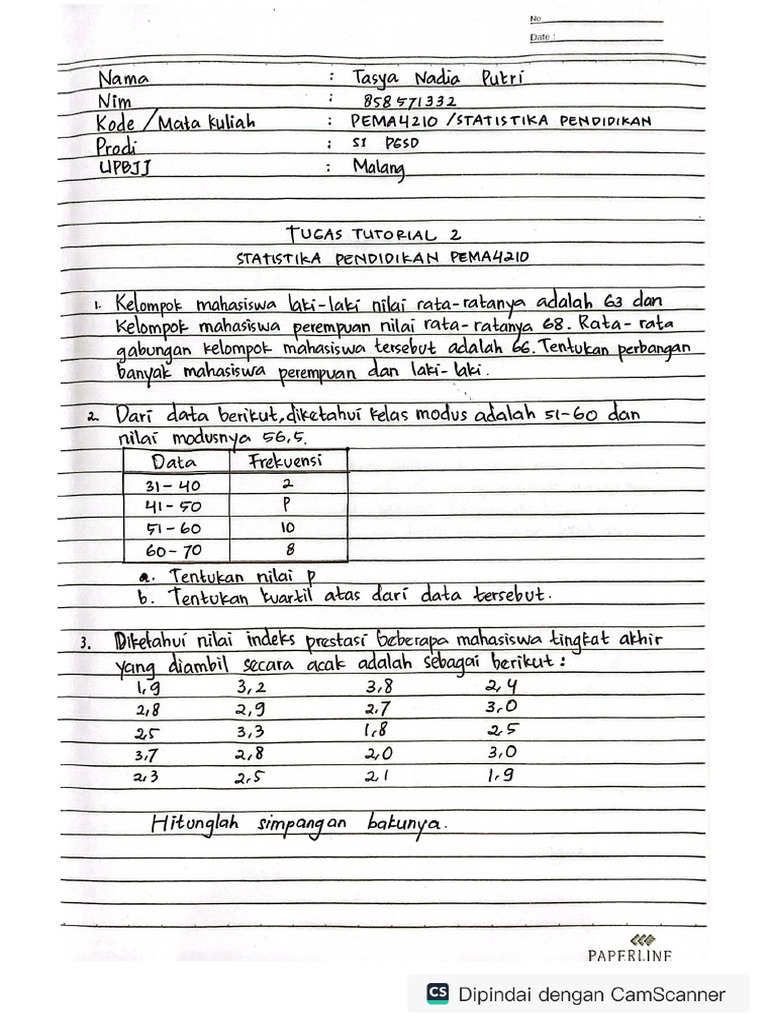 No.
Date :
Nama : Tasya Nadia Putri
Nim : 858571332
Kode /Mata kuliah : PEMA4210 /STATISTIKA PENDIDIKAN
Prodi : S1 PGSD
UPBJJ : Malang
TUGAS TUTORIAL 2
STATISTIKA PENDIDIKAN PEMA4210
1. Kelompok mahasiswa laki-laki nilai rata-ratanya adalah 63 dan
Kelompok mahasiswa perempuan nilai rata-ratanya 68. Rata-rata
gabungan kelompok mahasiswa tersebut adalah 66. Tentukan perbangan
banyak mahasiswa perempuan dan laki-laki.
2. Dari data berikut, diketahui kelas modus adalah 51-60 dan
nilai modusnya 56,5.
Data Frekuensi
31-40 2
41-50 P
51-60 10
60-70 8
a. Tentukan nilai p
b. Tentukan kuartil atas dari data tersebut.
3. Diketahui nilai indeks prestasi beberapa mahasiswa tingkat akhir
yang diambil secara acak adalah sebagai berikut :
1,9 3,2 3,8 2,4
2,8 2,9 2,7 3,0
2,5 3,3 1,8 2,5
3,7 2,8 2,0 3,0
2,3 2,5 2,1 1,9
Hitunglah simpangan bakunya.
PAPERLINE
CS Dipindai dengan CamScanner